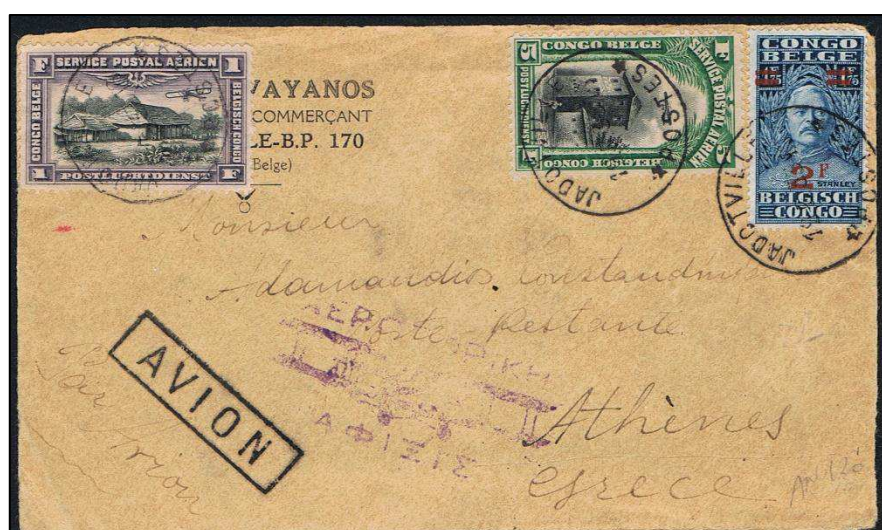 SERVICE POSTAL AÉRIEN
F 1
CONGO BELGE
BELGISCH CONGO
1 F
POSTLUCHTDIENST
VAYANOS
COMMERÇANT
LE-B.P. 170
Belge)
5 CONGO BELGE F
SERVICE POSTAL AÉRIEN
POSTLUCHTDIENST
BELGISCH CONGO
5
JADOTVILLE
POSTES
CONGO
BELGE
75
2 F
STANLEY
BELGISCH
CONGO
JADOTVILLE
Monsieur
Adamandios
Poste Restante
Athènes
Grèce
par avion
AVION
ΑΕΡ
ΙΚΗ
ΑΦΙΞΙΣ